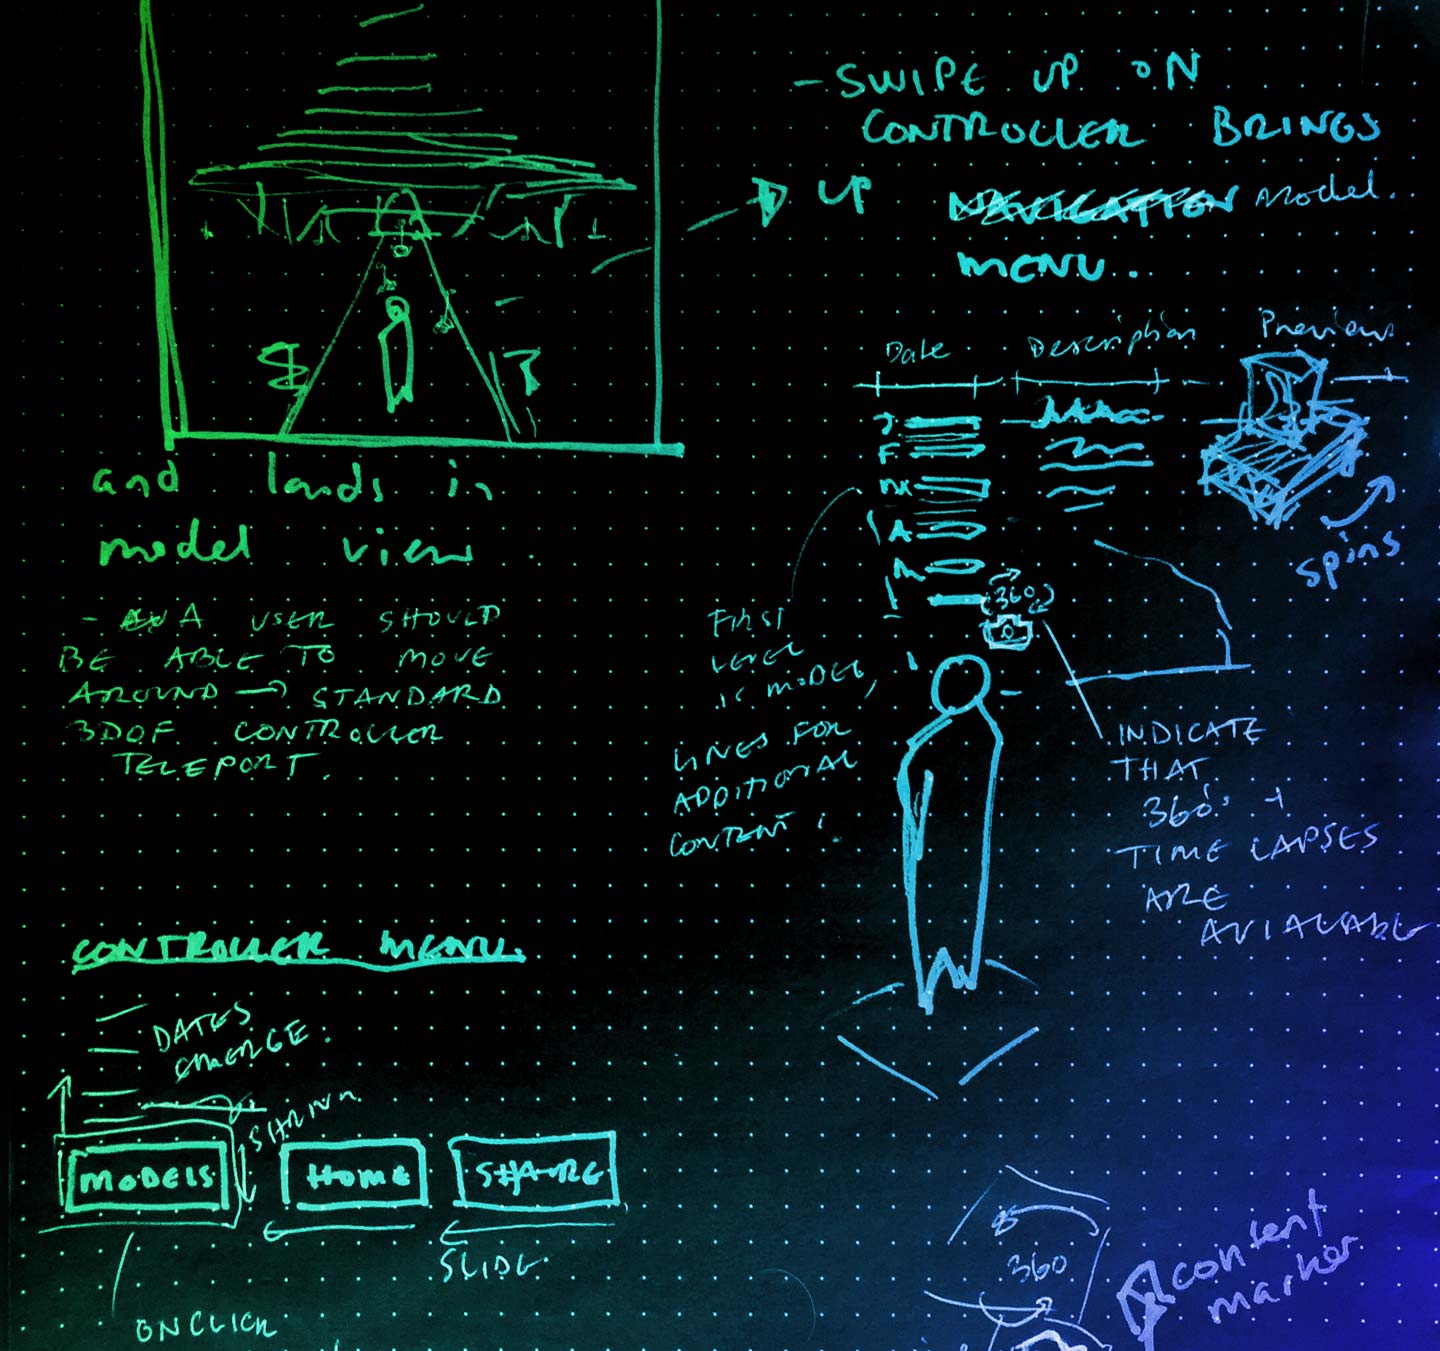 - SWIPE UP ON
CONTROLLER BRINGS
UP NAVIGATION MODEL
MENU.
Date Description Preview
J
F
M
A
M
spins
360
and lands in
model view
- A USER SHOULD
BE ABLE TO MOVE
AROUND → STANDARD
3DOF CONTROLLER
TELEPORT.
FIRST
LEVEL
IS MODEL,
LINES FOR
ADDITIONAL
CONTENT.
INDICATE
THAT
360° +
TIME LAPSES
ARE
AVIALABLE
CONTROLLER MENU.
DATES
EMERGE.
SHRINK
MODELS HOME SHARE
SLIDE
ON CLICK
360
content
marker